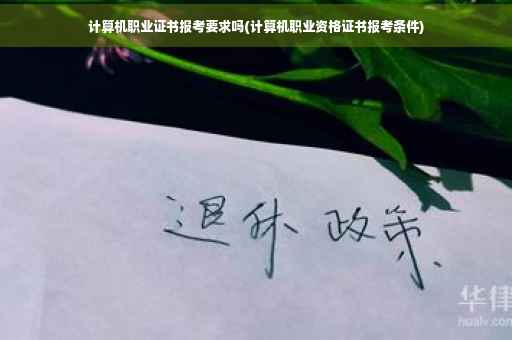 计算机职业证书报考要求吗(计算机职业资格证书报考条件)
退休 政策
华律
hualv.com